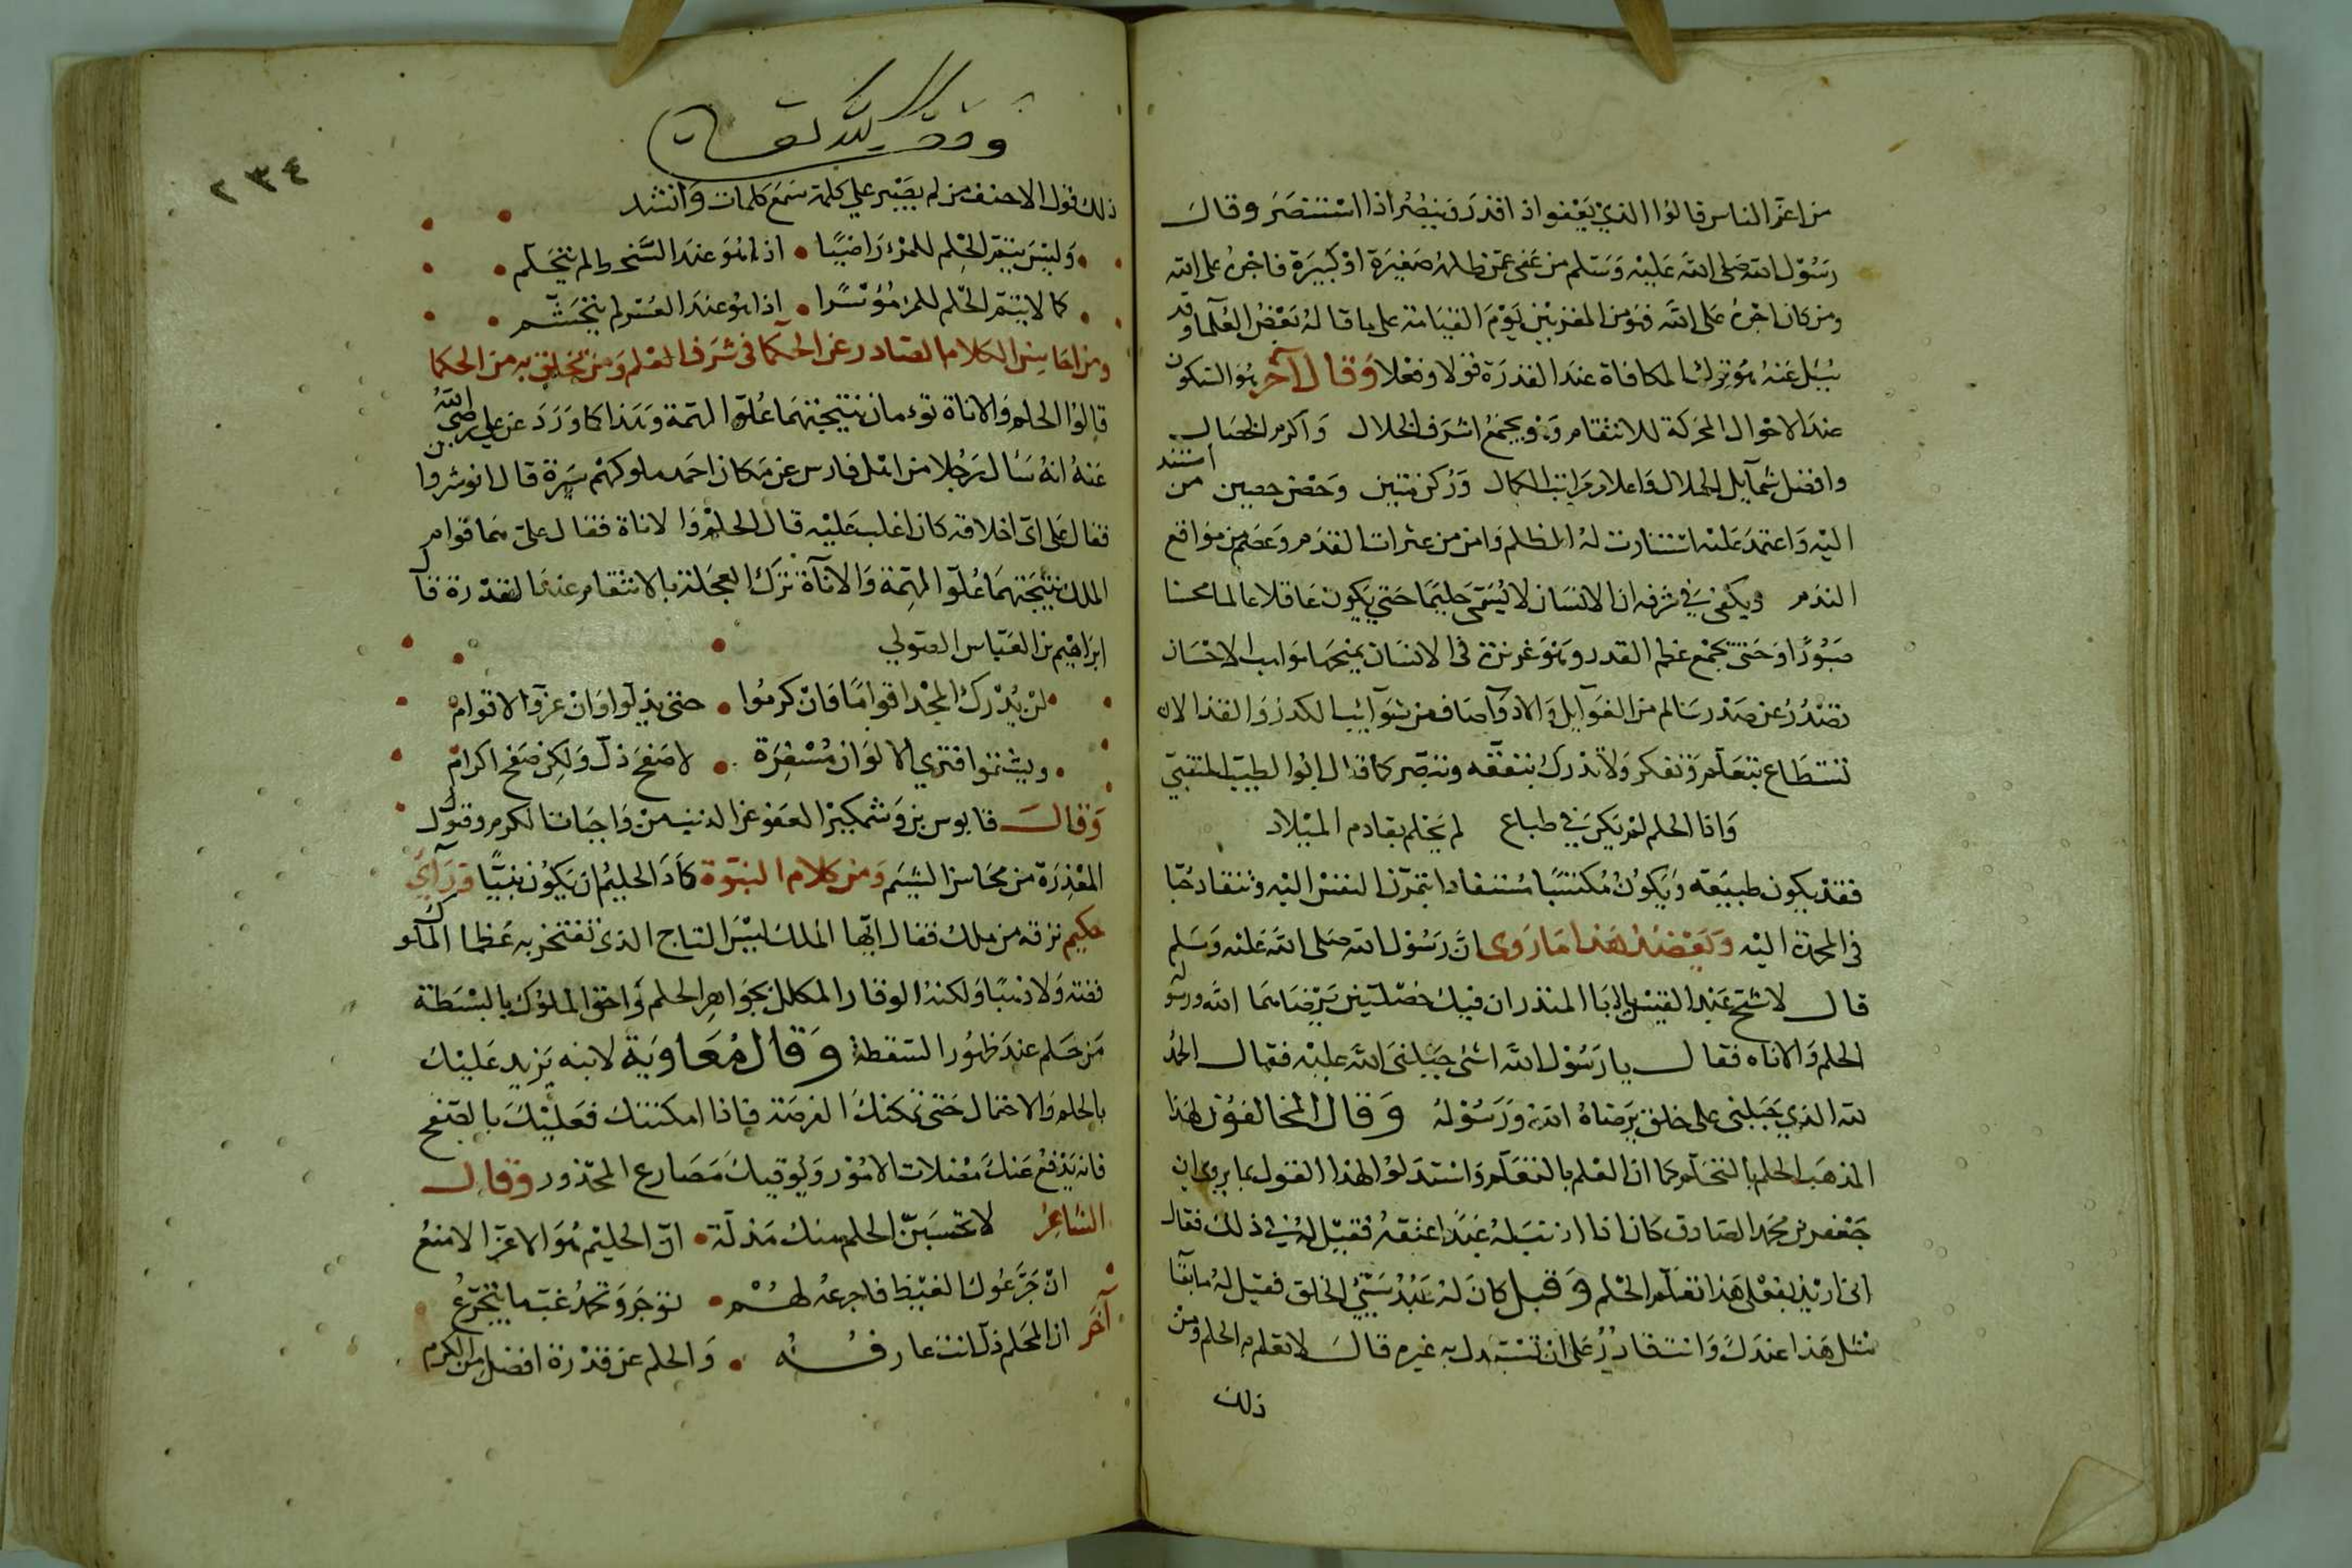 من اعز الناس قالوا الذي يعفو اذا قدر وينصر اذا استنصر وقال
رسول الله صلى الله عليه وسلم من عفى عمن ظلمه صغيرة او كبيرة فاجره على الله
ومن كان اجره على الله فهو من المقربين يوم القيامة على ما قاله بعض العلما وقد
سئل عنه هو ترك المكافاة عند القدرة قولا وفعلا وقال آخر هو السكون
عند الاحوال المحركة للانتقام وهو يجمع اشرف الخلال واكرم الخصال
وافضل شمآيل الجلال واعلا مراتب الكمال وركن متين وحصن حصين من استند
اليه واعتمد عليه استنارت له المظلم وامن من عثرات القدم وعصم من مواقع
الندم ويكفي في شرفه ان الانسان لا يسمى حليما حتي يكون عاقلا عالما محسنا
صبورا وحتى يجمع عظم القدر وهو غريزة في الانسان يمنحها مواهب الاحسان
تصدر عن صدر سالم من الغوآيل والاذ وآصاف من شوآئب الكدر والقذا لان
تستطاع بتعلم وتفكر ولا تدرك بتفقه وتبصر كما قال ابوا الطيب المتنبي
واذا الحلم لم يكن في طباع لم يحلم بقادم الميلاد
فقد يكون طبيعه ويكون مكتسبا مستفادا بتمرن النفس اليه وتنقاد حبا
في المحمدة اليه ويعضد هذا ما روى ان رسول الله صلى الله عليه وسلم
قال لاشج عبد القيس يا ابا المنذر ان فيك خصلتين يرضاهما الله ورسوله
الحلم والاناه فقال يا رسول الله اشئ جبلني الله عليه فقال الحمد
لله الذي جبلني على خلق يرضاه الله ورسوله وقال المخالفون لهذا
المذهب الحلم بالتحلم كما ان العلم بالتعلم واستدلوا لهذا القول بما يروى ان
جعفر بن محمد الصادق كان اذا اذنب له عبد اعتقه فقيل له في ذلك فقال
اني اريد بفعلي هذا تعلم الحلم وقيل كان له عبد سيئ الخلق فقيل له ما بقآ
مثل هذا عندك وانت قادر على ان تستبدل به غيره قال لاتعلم به الحلم ومن
ذلك
٢٣٤
ذلك قول الاحنف من لم يصبر علي كلمة سمع كلمات وانشد
وليس يتم الحلم للمرء راضيا اذا هو عند السخط لم يتحلم
كما لا يتم الحلم للمرء مؤسرا اذا هو عند العسر لم يتجشم
ومن احاسن الكلام الصادر عن الحكما في شرف العلم ومن تخلق به من الحكما
قالوا الحلم والاناة توءمان نتيجتهما علو الهمة وهذا كما ورد عن علي رضي الله
عنه انه سئال رجلا من اهل فارس عن من كان احمد ملوكهم سيرة قال انوشروان
فقال علي اي اخلاقه كان اغلب عليه قال الحلم والاناة فقال علي هما قوام
الملك نتيجتهما علو الهمة والاناة ترك العجلة بالانتقام عند القدرة قال
ابراهيم بن العباس الصولي
لن يدرك المجد اقواما وان كرموا حتى يذلوا وان عزوا لاقوام
ويشتموا فتري الالوان مسفرة لا صفح ذل ولكن صفح اكرام
وقال قابوس بن وشمكير العفو عن الذنب من واجبات الكرم وقبول
المعذرة من محاسن الشيم ومن كلام النبوة كاد الحليم ان يكون نبيا ورآي
حكيم نزقه من ملك فقال ايها الملك ليس التاج الذي تفتخر به عظما الملوك
فضه ولا ذهبا ولكنه الوقار المكلل بجواهر الحلم واحق الملوك بالبسطة
من حلم عند ظهور السقطة وقال معاوية لابنه يزيد عليك
بالحلم والاحتمال حتى تمكنك الفرصة فاذا امكنتك فعليك بالصفح
فانه يدفع عنك معضلات الامور ويوقيك مصارع المحذور وقال
الشاعر لا تحسبن الحلم منك مذلة ان الحليم هو الاعز الامنع
ان جرعوك الغيظ فاجرعه لهم توجر وتحمد غب ما يتجرع
آخر ان الحلم ذل انت عارفه والحلم عن قدرة افضل من الكرم